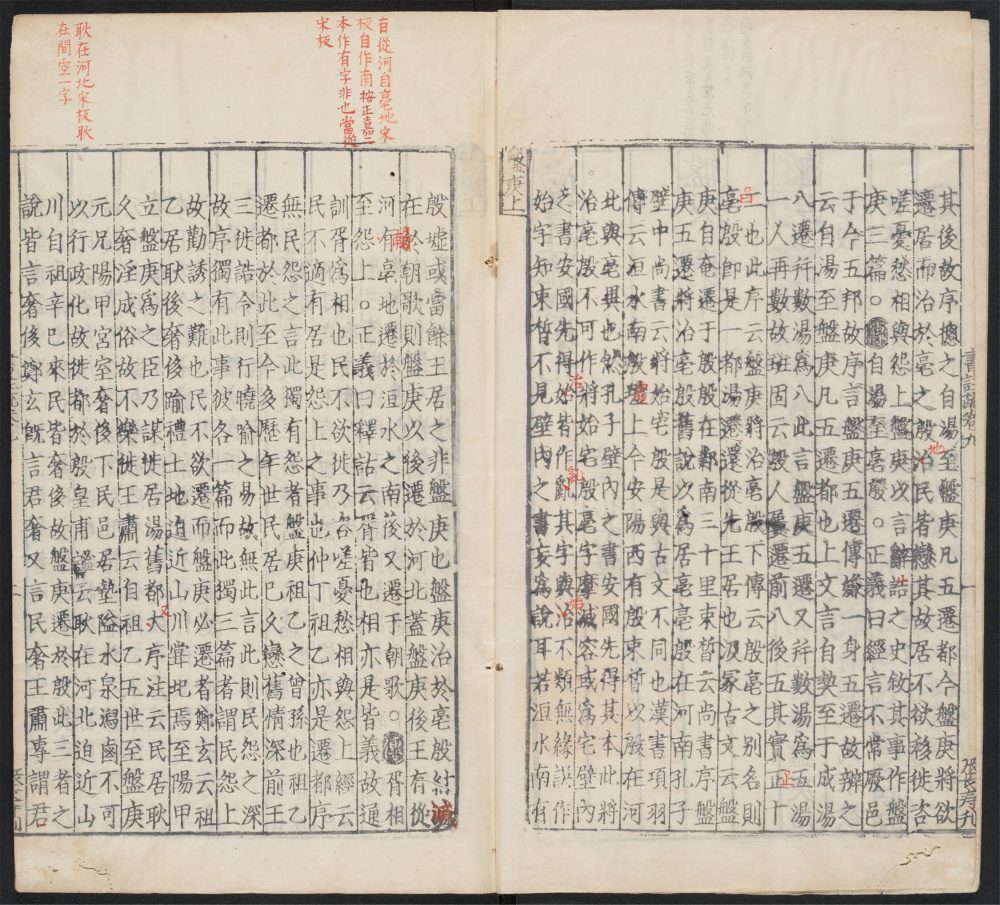 其後故序緫之自湯至盤庚凡五遷都今盤庚將欲
遷居而治於亳之殷治民皆戀其故居不欲移徙咨
嗟憂愁相與怨上盤庚以言辭誥之史敘其事作盤
庚三篇○傳自湯至亳殷○正義曰經言不常厥邑
于今五邦故序言盤庚五遷傳嫌一身五遷故辨之
云自湯至盤庚凡五遷都也上文言自契至于成湯
八遷并數湯爲八此言盤庚五遷又并數湯爲五湯
一人再數故班固云殷人屢遷前八後五其實正十
二也此序云盤庚將治亳殷下傳云殷亳之別名則
亳殷即是一都湯遷還從先王居也汲冢古文云盤
庚自奄遷于殷殷在鄴南三十里束晳云尚書序盤
庚五遷將治亳殷舊說以爲居亳亳殷在河南孔子
壁中尚書云將始宅殷是與古文不同也漢書項羽
傳云洹水南殷墟上今安陽西有殷束晳以殷在河
北與亳異也然孔子壁內之書安國先得其本此將
治亳殷不可作將始宅殷亳字摩滅容或爲宅壁內
之書安國先得始皆作亂其字與治不類無緣誤作
始字知束晳不見壁內之書妄爲說耳若洹水南有
殷墟或當餘王居之非盤庚也盤庚治於亳殷紂滅
在於朝歌則盤庚以後遷於河北蓋盤庚後王有從
河有亳地遷於洹水之南後又遷于朝歌○傳胥相
至怨上○正義曰釋詁云胥皆也相亦是皆義故通
訓胥爲相也民不欲徙乃咨嗟憂愁相與怨上經云
民不適有居是怨上之事也仲丁祖乙亦是遷都序
無民怨之言此獨有怨者盤庚祖乙之曾孫也祖乙
遷都於此至今多歷年世民居已久戀舊情深前王
三徙誥令則行曉喻之易故無此言此則民怨之深
故序獨有此事彼各一篇而此獨三篇者謂民怨上
故勸誘之難也民不欲遷而盤庚必遷者鄭玄云祖
乙居耿後奢侈踰禮土地迫近山川嘗圮焉至陽甲
立盤庚爲之臣乃謀徙居湯舊都又序注云民居耿
久奢淫成俗故不樂徙王肅云自祖乙五世至盤庚
元兄陽甲宮室奢侈下民邑居墊隘水泉瀉鹵不可
以行政化故徙都於殷皇甫謐云耿在河北迫近山
川自祖辛已來民皆奢侈故盤庚遷於殷此三者之
說皆言奢侈鄭玄旣言君奢又言民奢王肅專謂君
盤庚上
有從河自亳地宋
板自作南按正嘉二
本作有字非也當從
宋板
耿在河北宋板耿
在間空一字